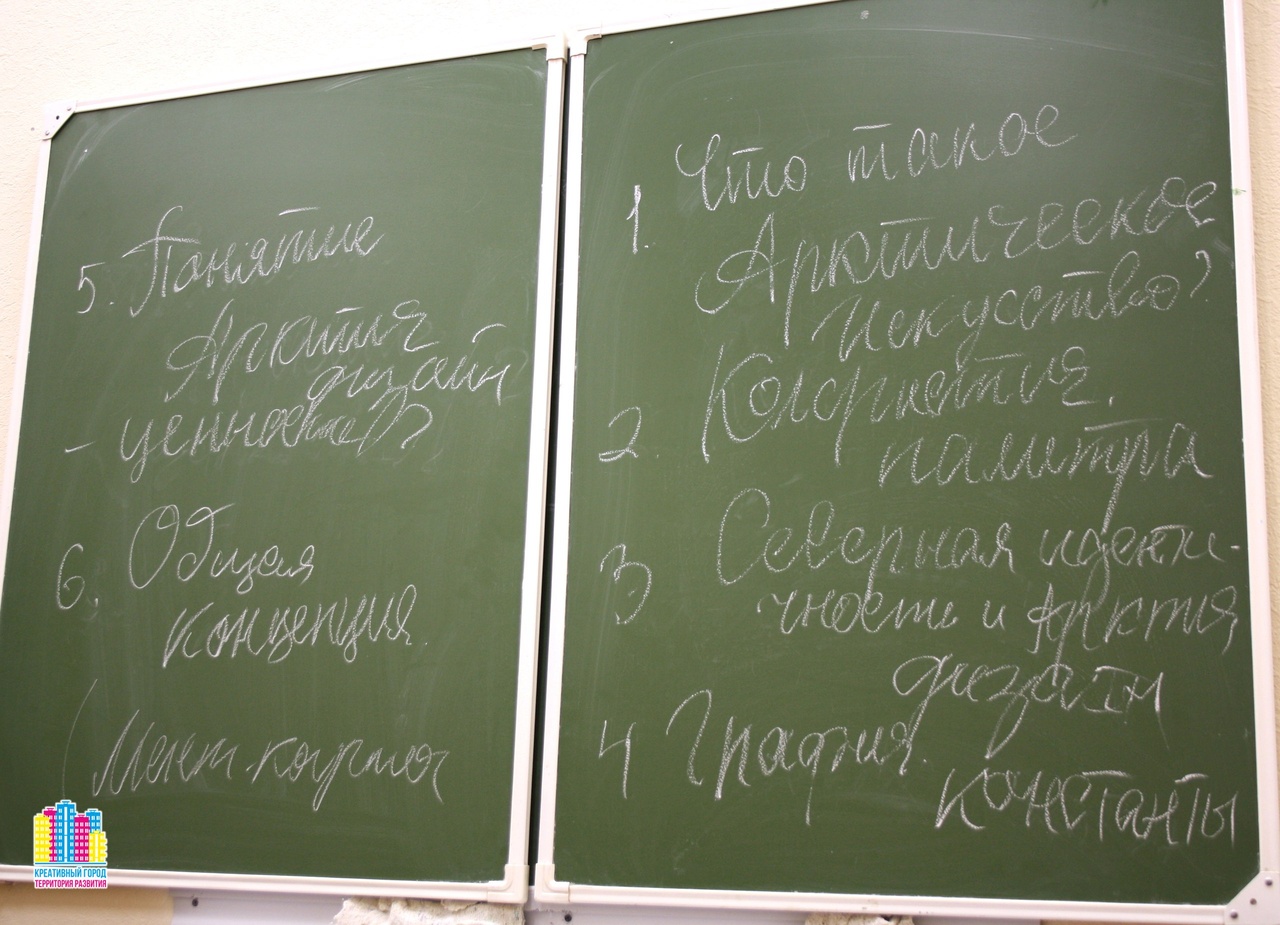 5. Понятие
Арктия
дизайн
- ценности??
6. Общая
концепция.
Мент. карта
1. Что такое
Арктическое
искусство?
2 Колористия.
палитра
3 Северная иденти-
чность и Арктия,
дизайн
4 Графия.
константы
КРЕАТИВНЫЙ ГОРОД
ТЕРРИТОРИЯ РАЗВИТИЯ